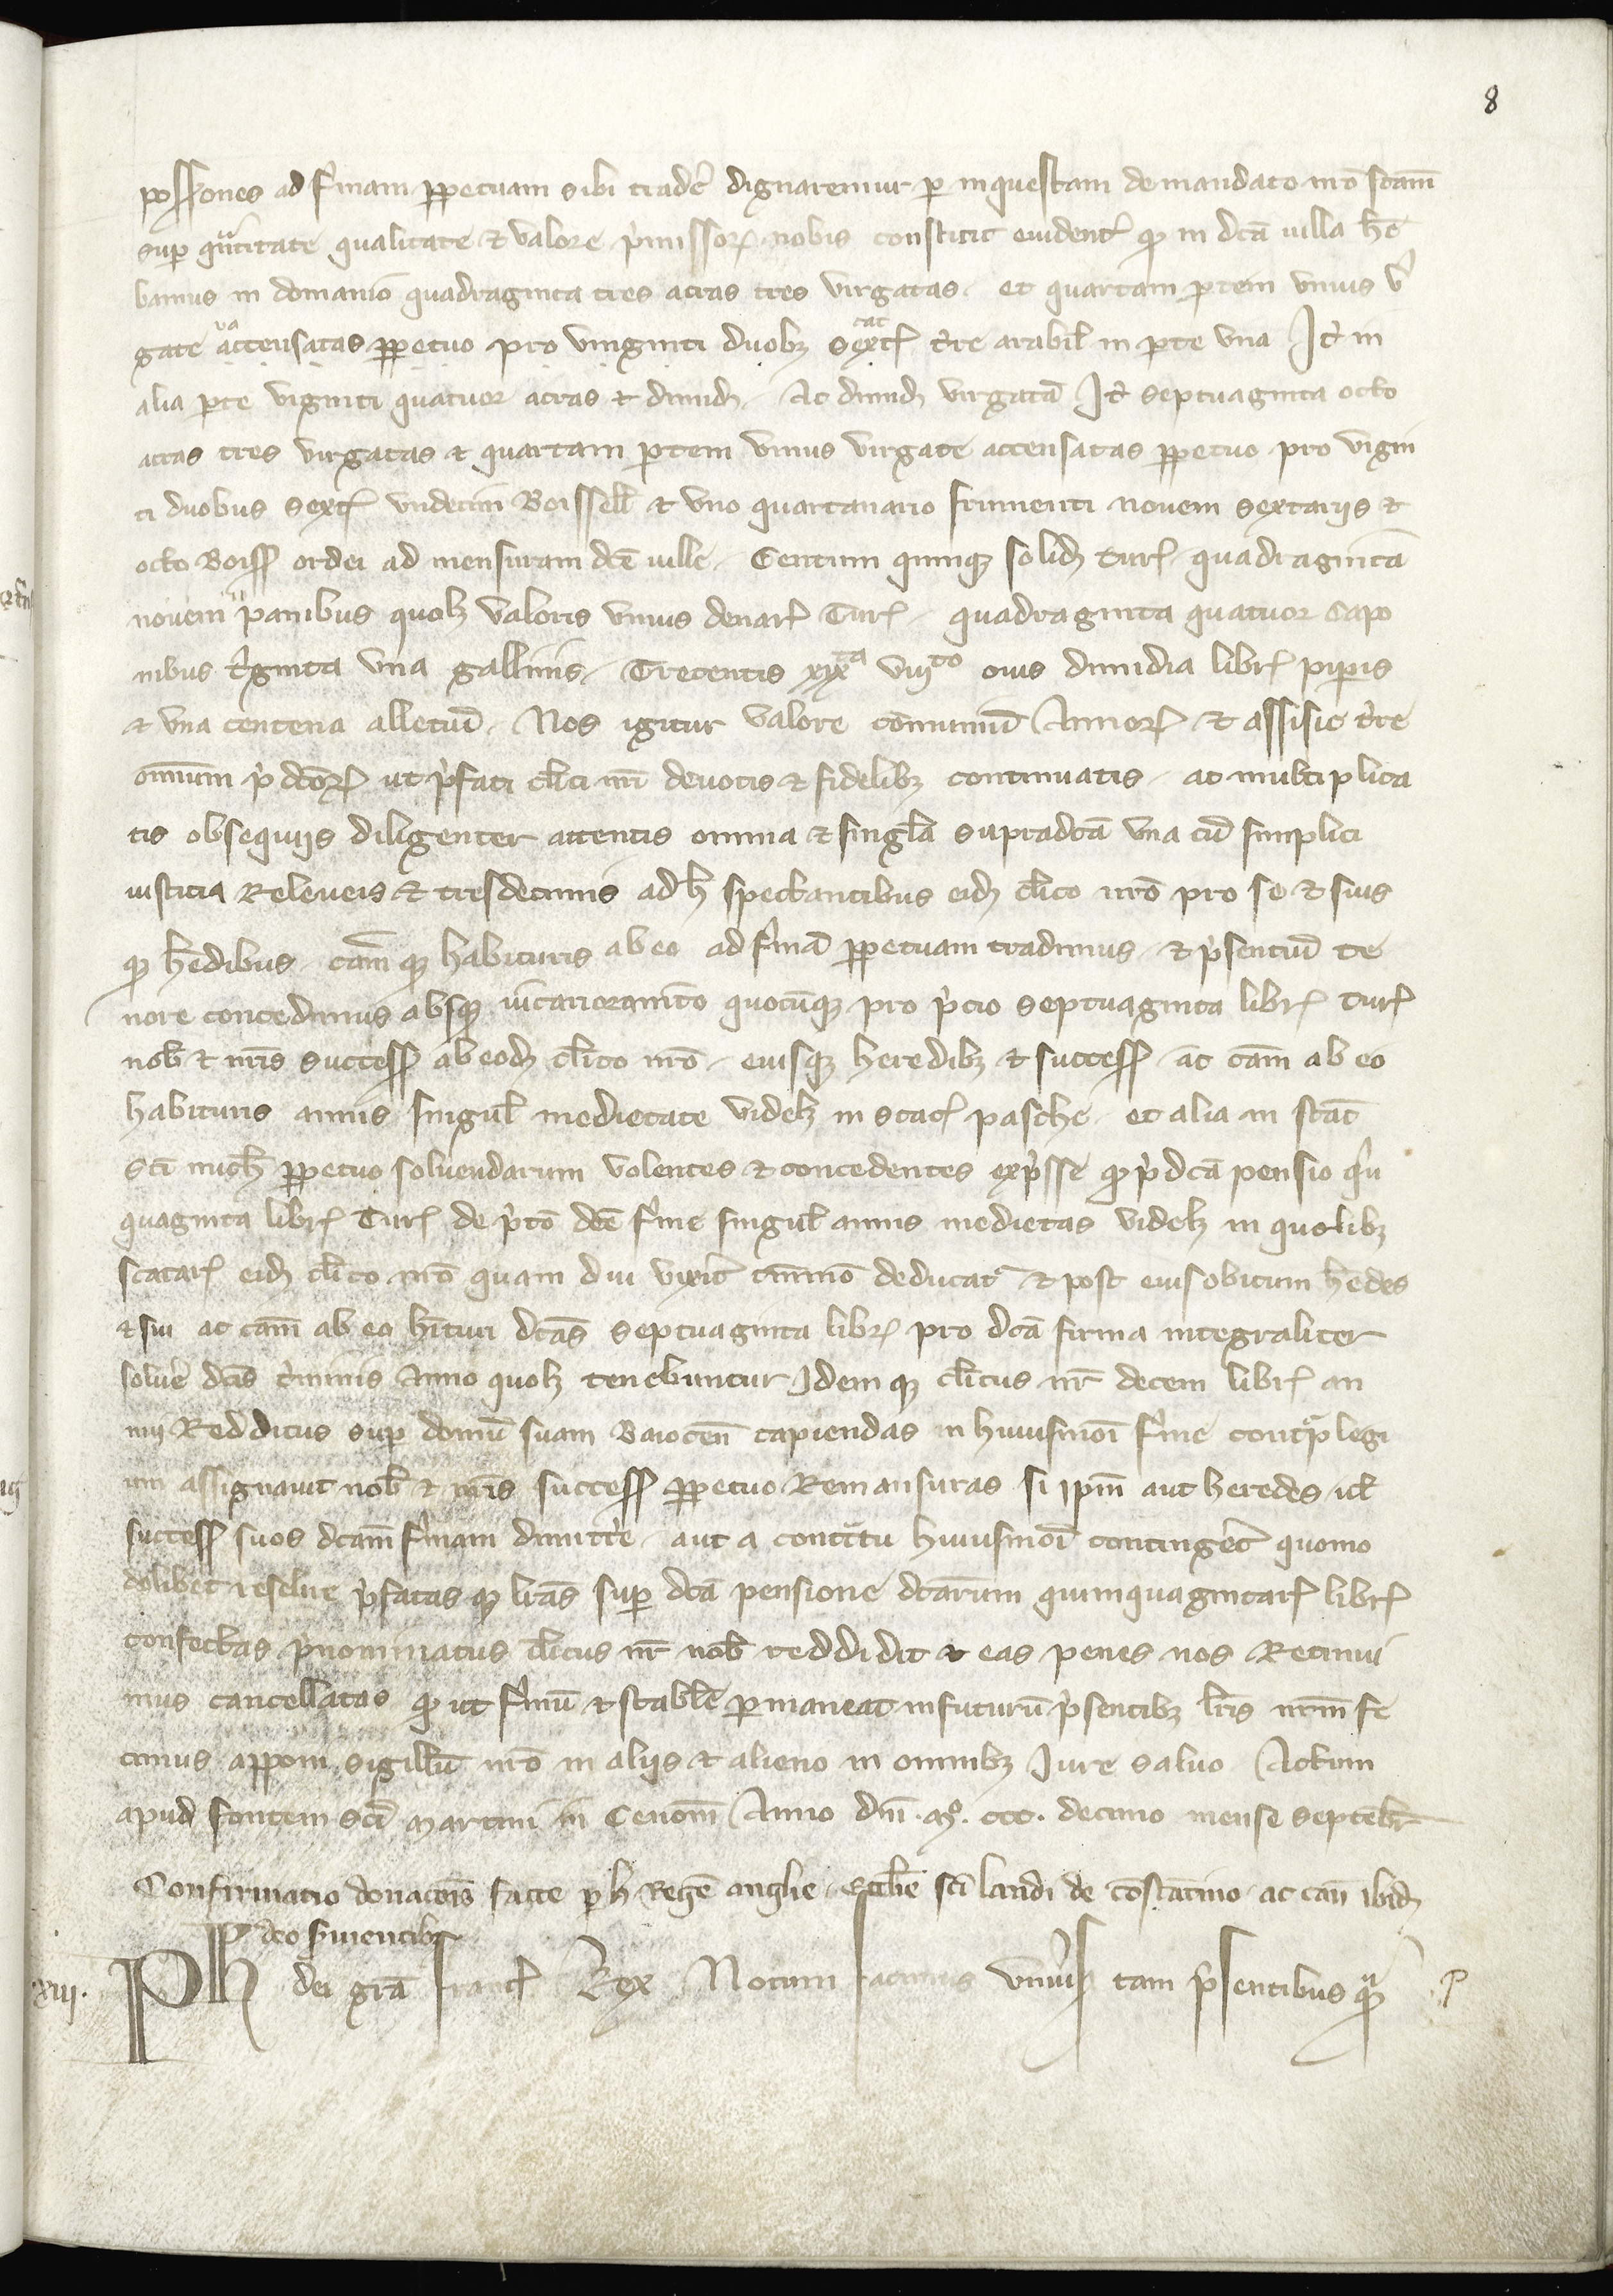 8
possones ad fimam ppetuam sibi tradē dignaremur p inquestam de mandato nrō fcam
sup quātitate qualitate et valore pmissoꝝ nobis constitit euident qꝫ in dcā villa hē
bamus in domanio quadraginta tres acras tres virgatas et quartam ptem vnius v
gate accensatas ppetuo pro vinginti duobꝫ sext tre arabil in pte vna It in
alia pte viginti quatuor acras et dimid Ac dimid virgatā It septuaginta octo
acras tres virgatas et quartam ptem vnius virgate accensatas ppetuo pro vigin
ti duobus sext vndecim Boissell et vno quartanario frumenti nouem sextariis et
octo Boiss ordei ad mensuram dcē ville Centum quinqꝫ solid tur quadraginta
nouem panibus quolꝫ valoris vnius denar Tur quadraginta quatuor Capo
nibus tginta vna gallinis Trecentis xixᵗᵃ viiiᵗᵒ ouis dimidia libr pipis
et vna centena alletiū Nos igitur valore cōmuniū Annoꝝ et assisie tre
omnium pdcōꝝ ut pfati clīci nrī deuotis et fidelibꝫ continuatis ac multiplica
tis obsequiis diligenter attentis omnia et singlā supradcā vna cū simplici
iusticia Releueis et tresdecimis ad h spectantibus eid clīco nrō pro se et suis
qꝫ hēdibus cām qꝫ habituris ab eo ad fimā ppetuam tradimus et psentiū te
nore concedimus absqꝫ quocūqꝫ pro pcio septuaginta libr tur
nob et nrīs success ab eod clīco nrō eiusqꝫ heredibꝫ et success ac cām ab eo
habituris annis singul medietate videlꝫ in scac pasche et alia in scac
scī mich ppetuo soluendarum volentes et concedentes expsse qꝫ pdcā pensio qu
quaginta libr Tur de pcō dcē fime singul annis medietas videlꝫ in quolibꝫ
scacar eid clīco nrō quam diu vixit omīno deducat et post eius obitum hēdes
et sui ac cām ab eo hīturi dcās septuaginta libr pro dcā firma integraliter
soluē dcīs tminis Anno quolꝫ tenebuntur Idem qꝫ clīcus nr decem libr an
nui Redditus sup domū suam Baiocen capiendas in huiusmōi fime contplegi
um assignauit nob et nrīs success ppetuo Remansuras si ipm aut heredes ul
success suos dcam fimam dimitte aut a contctu huiusmōi contingēt quomo
dolibet resilire pfatas qꝫ lrās sup dcā pensione dcārum quinquagintar libr
confectas pnominatus clīcus nr nob reddidit et eas penes nos Retinui
mus cancellatas qꝫ ut fimū et stabīle pmaneat in futurū psentibꝫ lrīs nrm fe
cimus apponi sigillū nrō in aliis et alieno in omnibꝫ Iure saluo Actum
apud fontem scī martini in Cenom Anno dnī mº. ccc. decimo mense septebr
Confirmatio donacōis facte p h Regē anglie Ecclīe scī laudi de costātino ac can ibid
deo seruientibꝫ
xiii. Ph dei gra franc Rex Notum facimus vniūs tam psentibus qꝫ